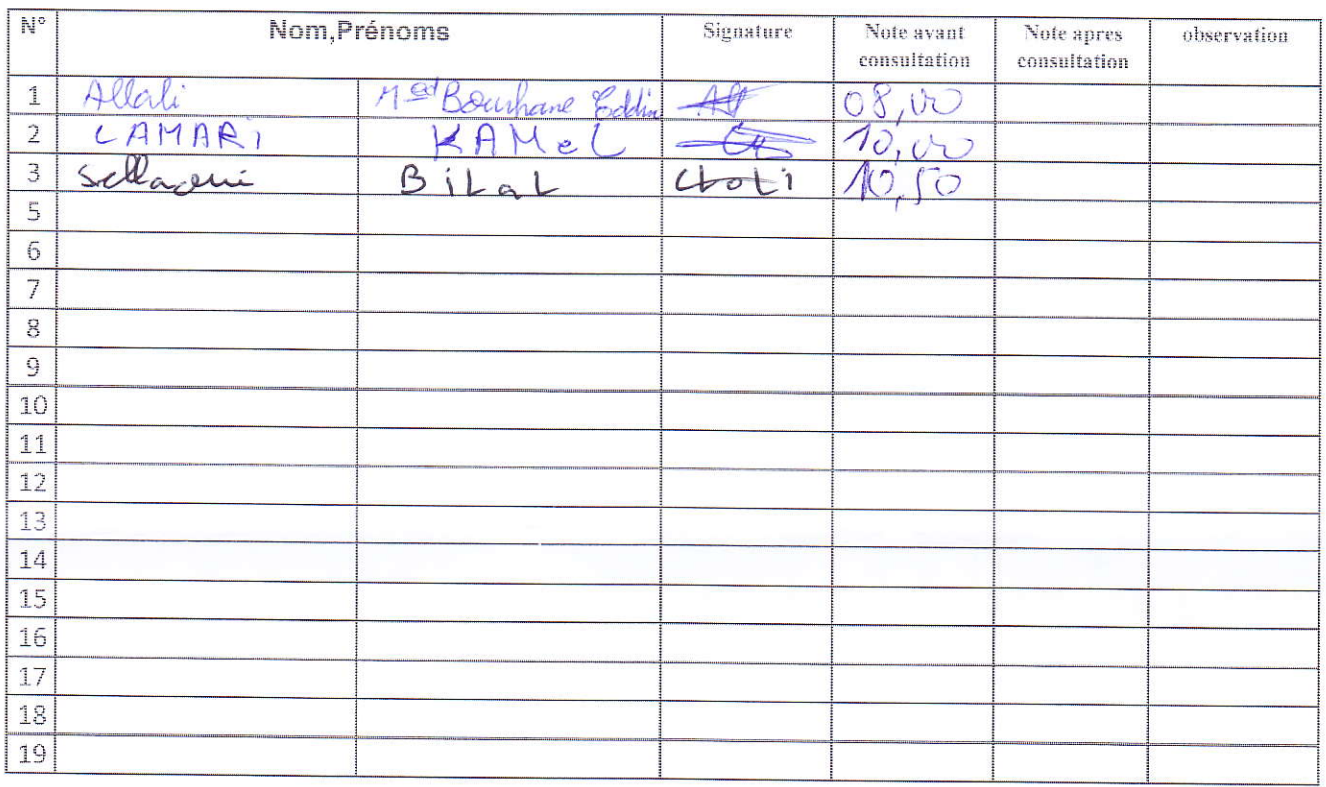 N° Nom,Prénoms Signature Note avant consultation Note apres consultation observation
1 Allali Med Bourhane Eddin 08,00
2 LAMARi KAMeL 10,00
3 Bilal 10,50
5
6
7
8
9
10
11
12
13
14
15
16
17
18
19